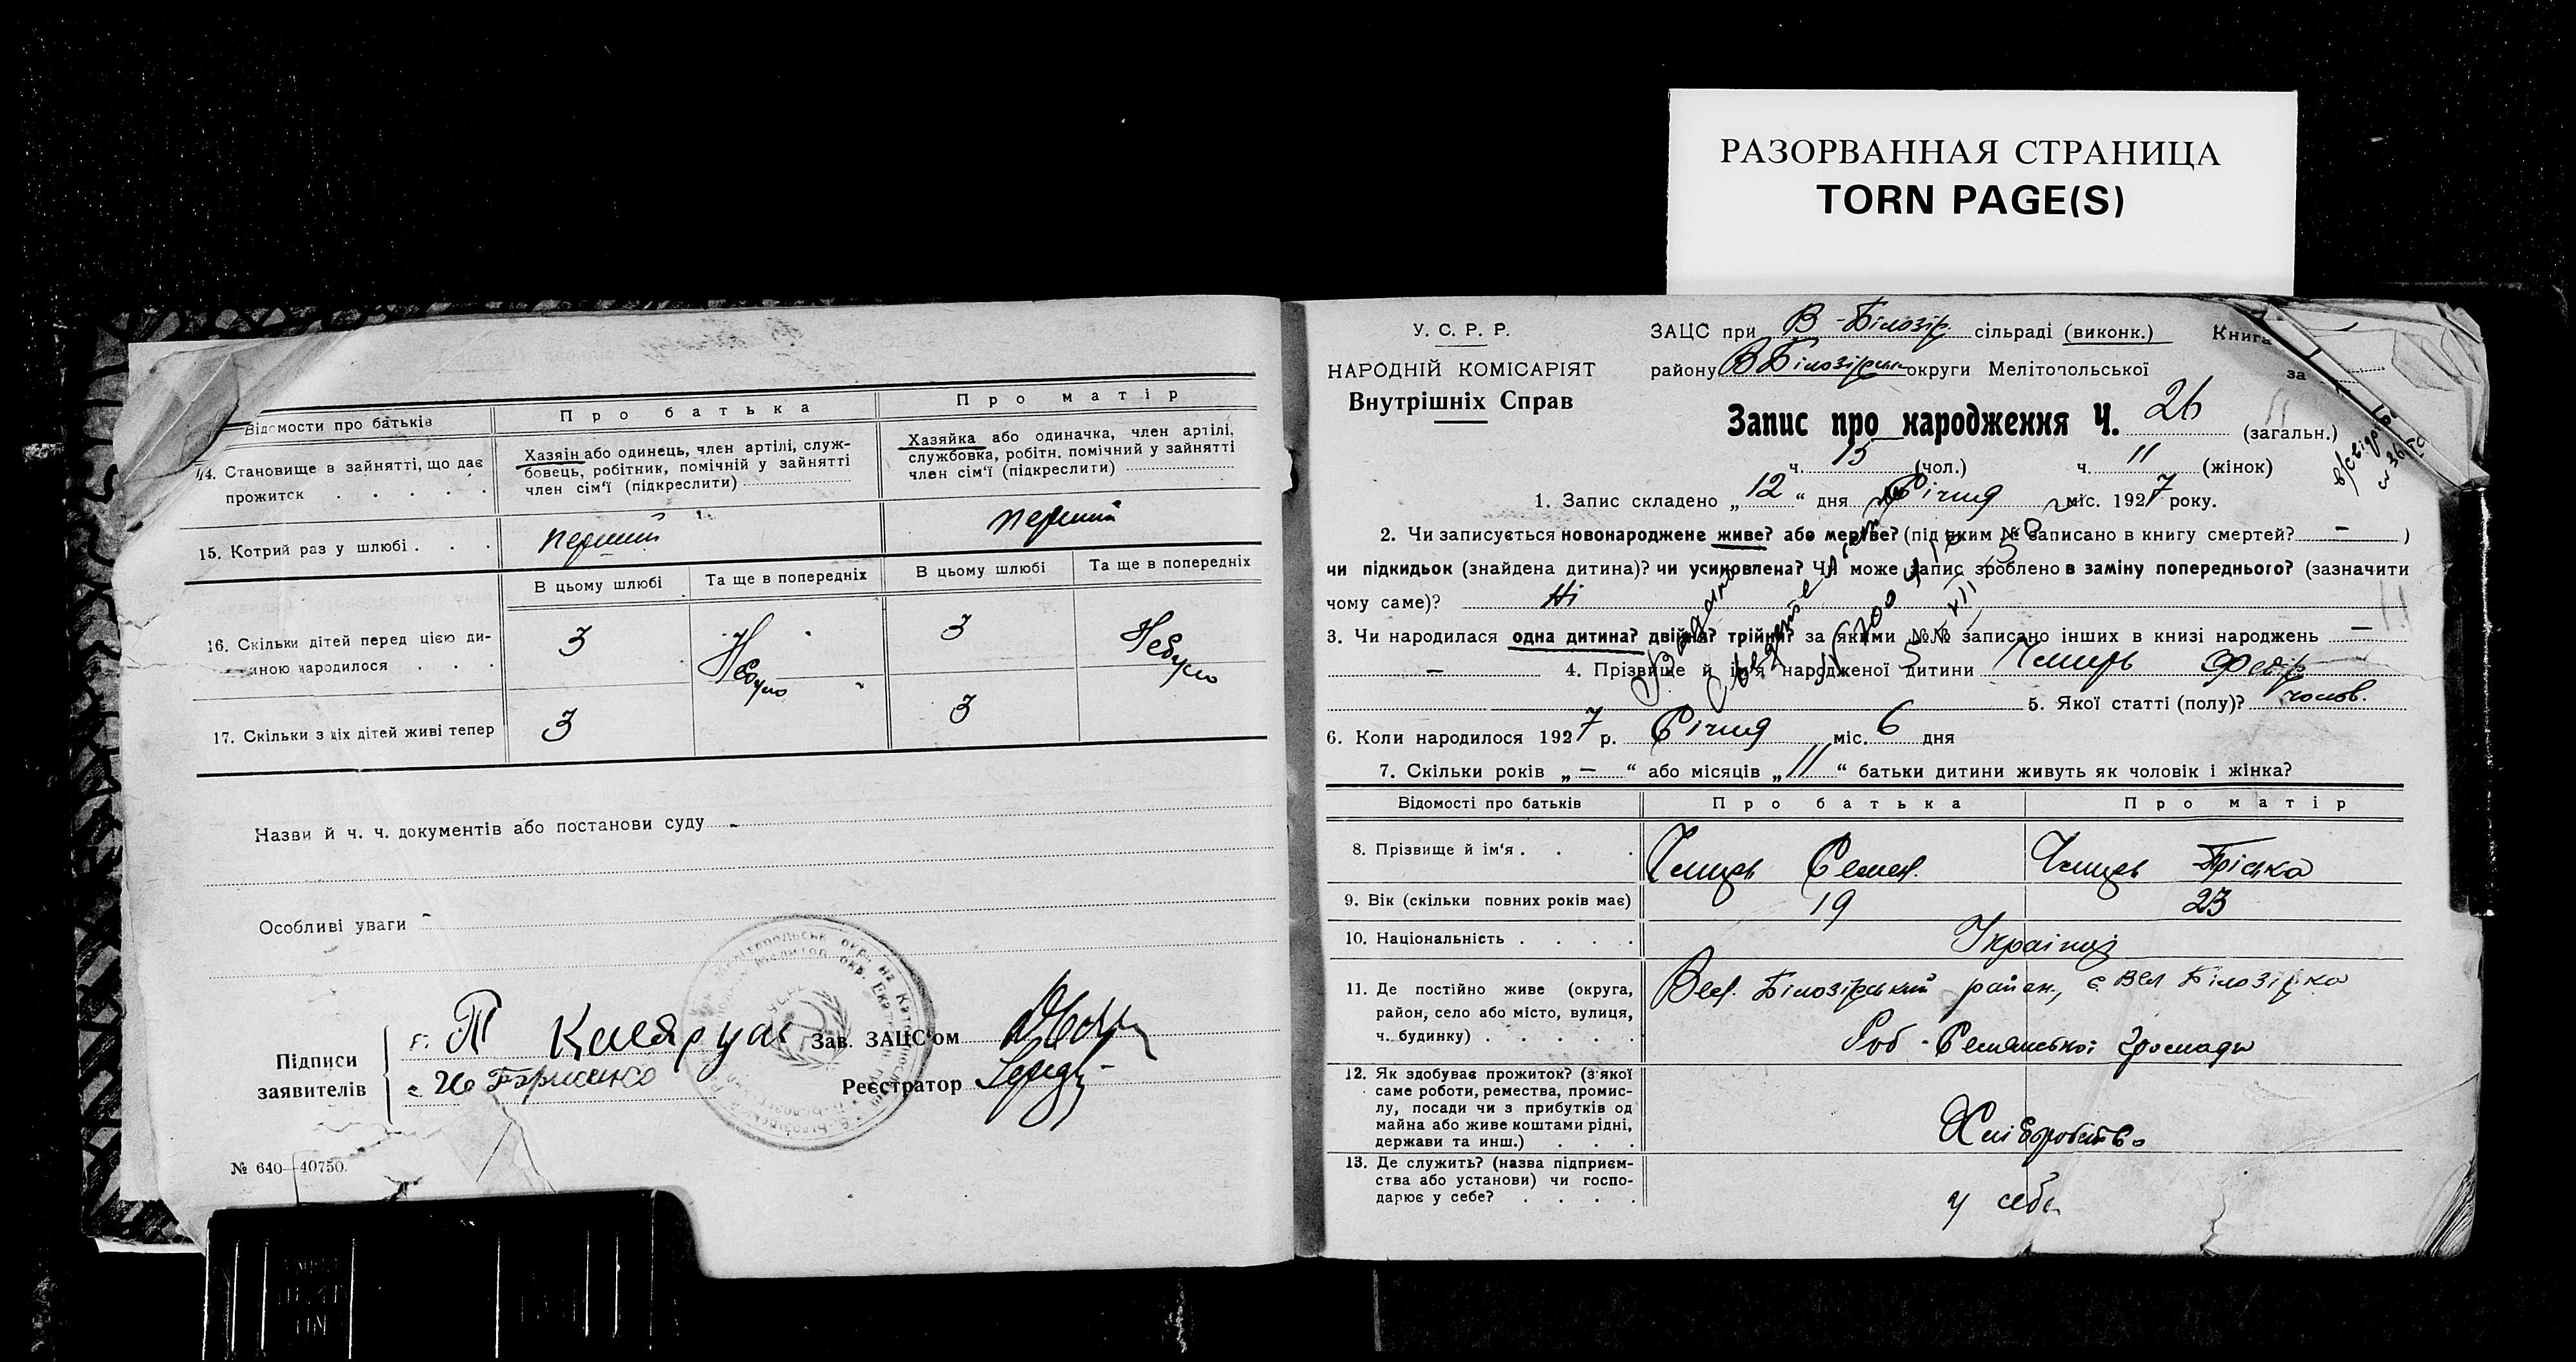 РАЗОРВАННАЯ СТРАНИЦА
TORN PAGE(S)
Відомости про батьків
Про батька
Про матір
14. Становище в зайнятті, що дає прожиток . . . . .
Хазяін або одинець, член артілі, служ-
бовець, робітник, помічній у зайнятті
член сім'ї (підкреслити)
Хазяйка або одиначка, член артілі,
службовка, робітн. помічний у зайнятті
член сім'ї (підкреслити)
15. Котрий раз у шлюбі . . . перший перший
В цьому шлюбі Та ще в попередніх В цьому шлюбі Та ще в попередніх
16. Скільки дітей перед цією ди-
ною народилося . . . 3 Небуло 3 Небуло
17. Скільки з ціх дітей живі тепер 3 3
Назви й ч. ч. документів або постанови суду -
Особливі уваги -
Підписи
заявителів
Зав. ЗАЦС'ом
Реєстратор
№ 640—40750.
У. С. Р. Р.
НАРОДНІЙ КОМІСАРІЯТ
Внутрішніх Справ
ЗАЦС при В-Білозір. сільраді (виконк.) Книга
району ВБілозірськ округи Мелітопольської за
Запис про народження Ч. 26 (загальн.)
ч. 15 (чол.) ч. 11 (жінок)
1. Запис складено „12“ дня Січня міс. 1927 року.
2. Чи записується новонароджене живе? або мертве? (під яким № записано в книгу смертей? - )
чи підкидьок (знайдена дитина)? чи усиновлена? Чи може запис зроблено в заміну попереднього? (зазначити
чому саме)? Ні
3. Чи народилася одна дитина? двійня? трійня? за якими №№ записано інших в книзі народжень -
- 4. Прізвище й ім'я народженої дитини Чмирь Федір
5. Якої статті (полу)? чолов.
6. Коли народилося 1927 р. Січня міс. 6 дня
7. Скільки років „-“ або місяців „11“ батьки дитини живуть як чоловік і жінка?
Відомості про батьків Про батька Про матір
8. Прізвище й ім'я . . . Чмирь Семен. Чмирь Пріська
9. Вік (скільки повних років має) 19 23
10. Національність . . . . Українці
11. Де постійно живе (округа,
район, село або місто, вулиця,
ч. будинку) . . . . .
Вел. Білозірський район, с Вел Білозірка
громади
12. Як здобуває прожиток? (з якої
саме роботи, ремества, промис-
лу, посади чи з прибутків од
майна або живе коштами рідні,
держави та инш.) . . .
Хліборобство
13. Де служить? (назва підприєм-
ства або установи) чи госпо-
дарює у себе? . . . .
у себе